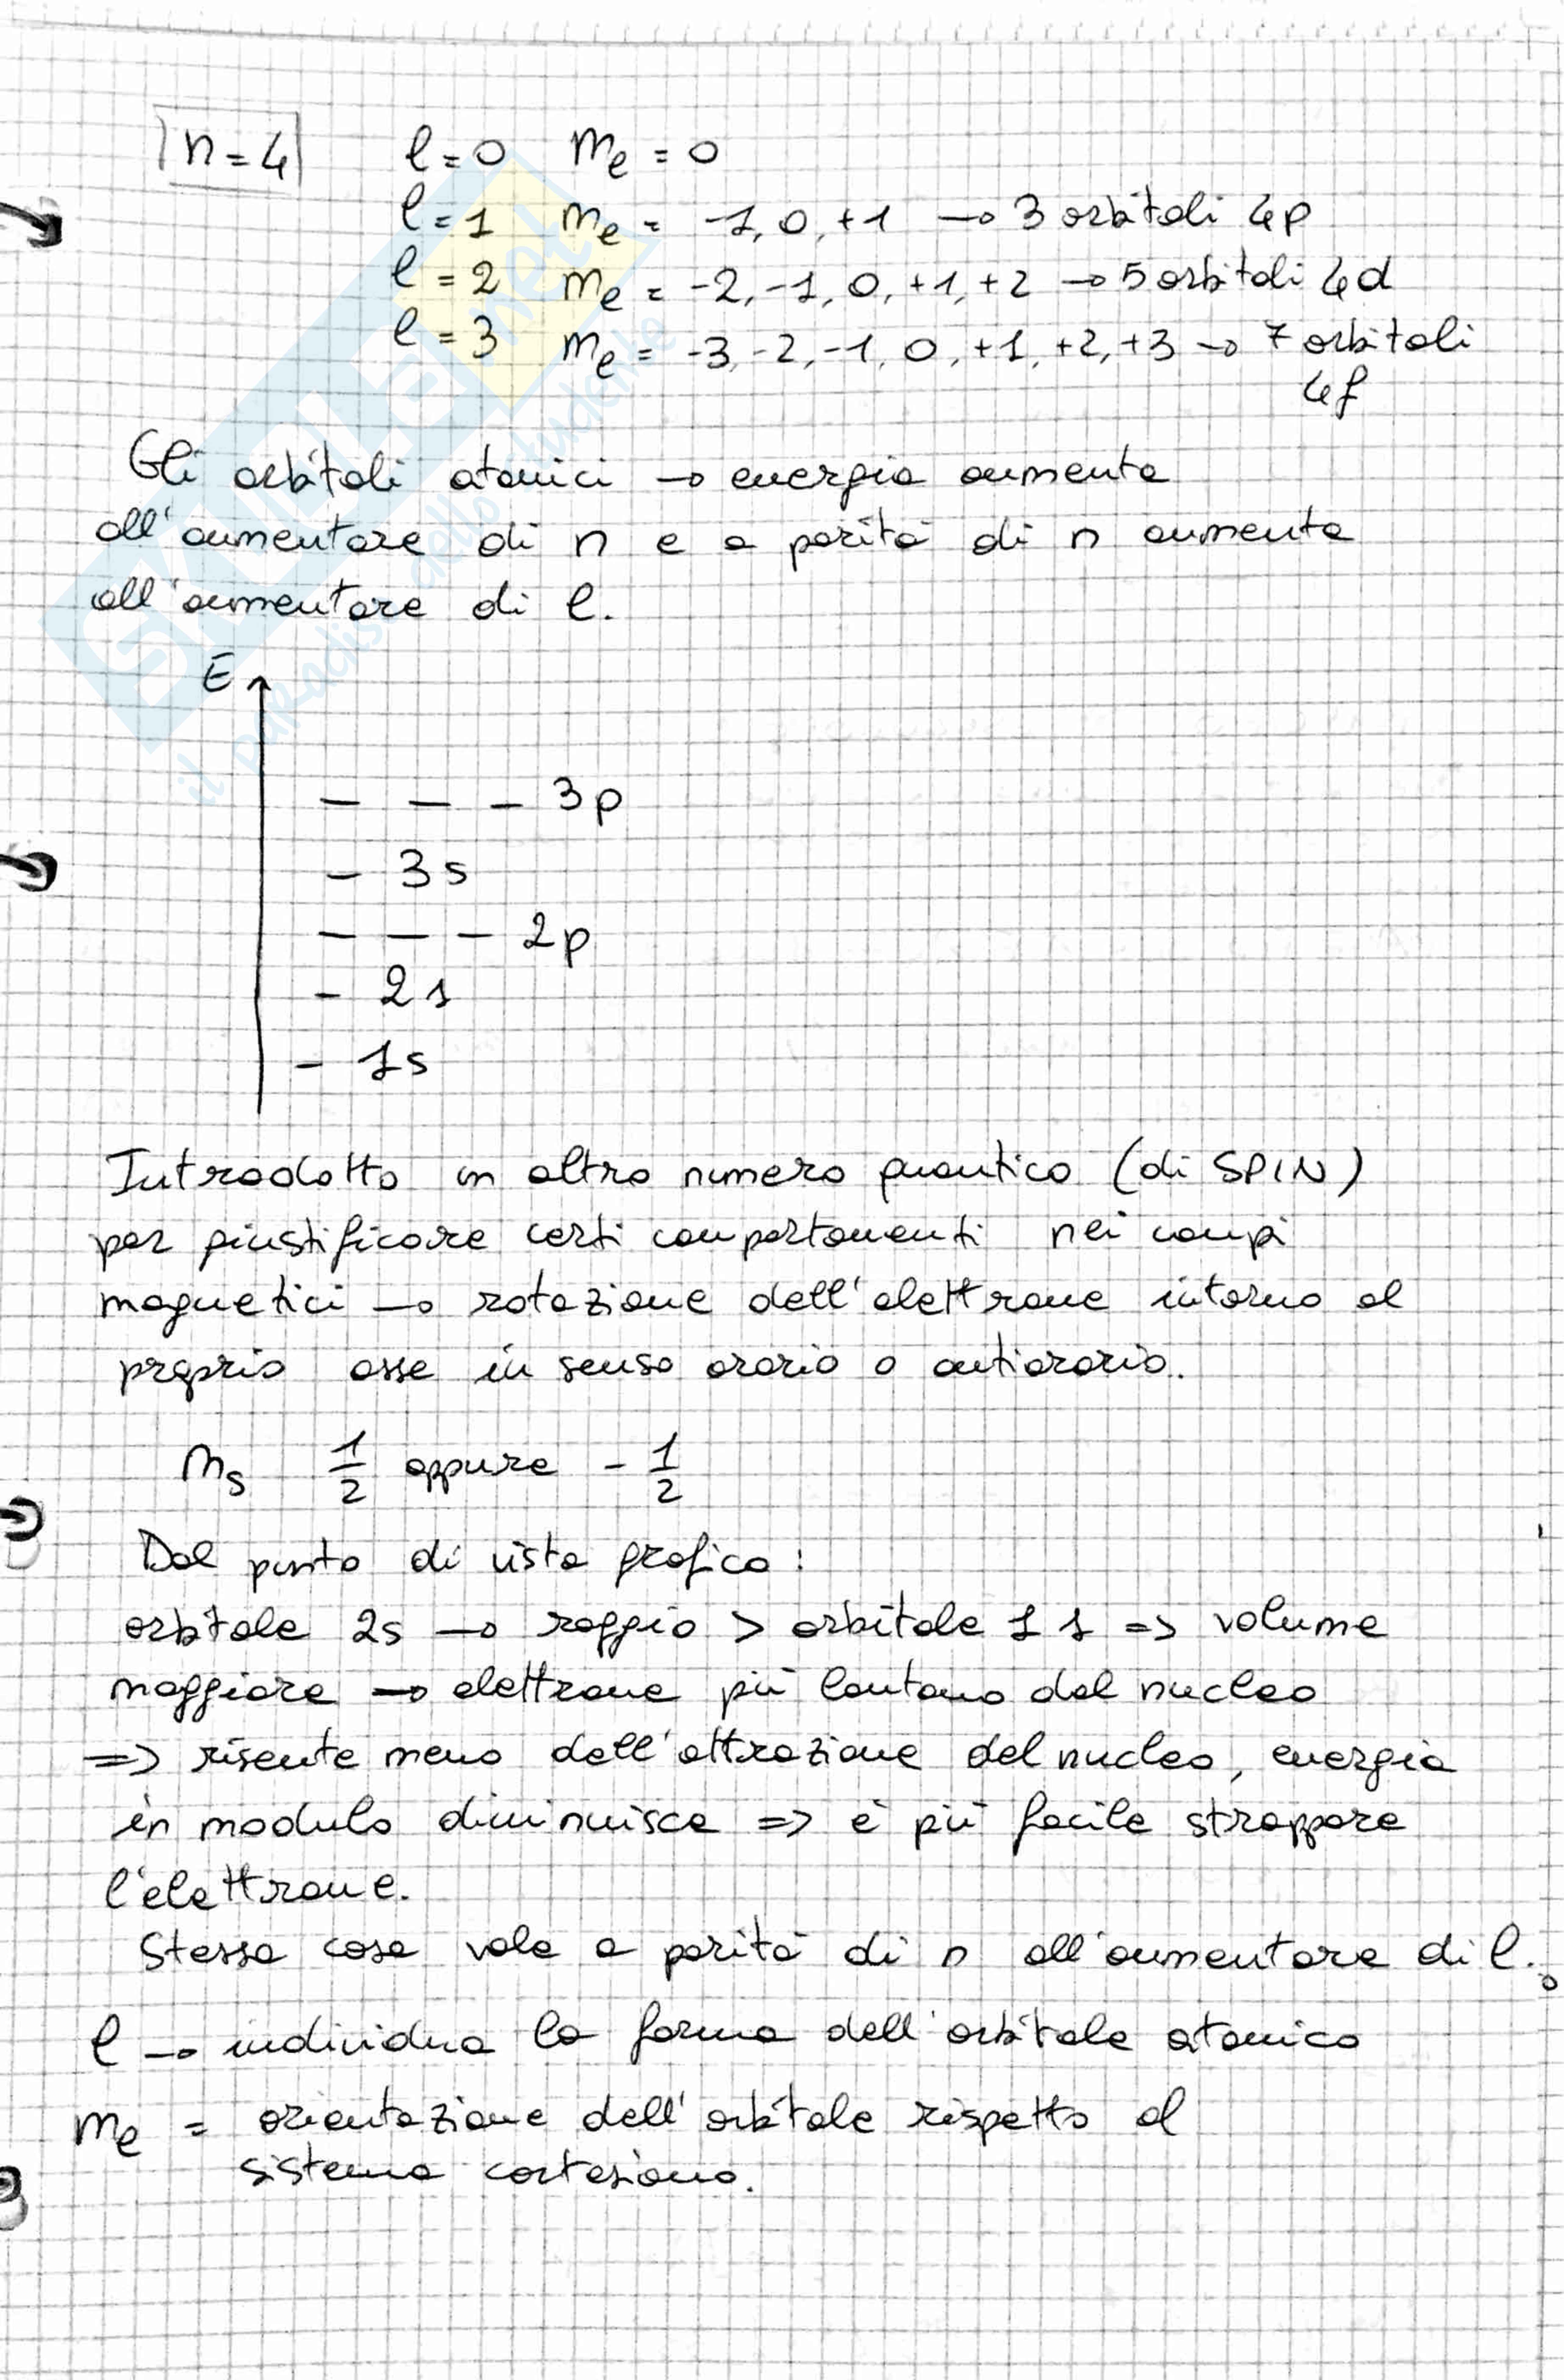 n=4 l=0 ml = 0
l=1 ml = -1, 0, +1 → 3 orbitali 4p
l=2 ml = -2, -1, 0, +1, +2 → 5 orbitali 4d
l=3 ml = -3, -2, -1, 0, +1, +2, +3 → 7 orbitali
4f
Gli orbitali atomici → energia aumenta
all'aumentare di n e a parità di n aumenta
all'aumentare di l.
E
- - - 3p
- 3s
- - - 2p
- 2s
- 1s
Introdotto un altro numero quantico (di SPIN)
per giustificare certi comportamenti nei campi
magnetici → rotazione dell'elettrone intorno al
proprio asse in senso orario o antiorario.
ms 1/2 oppure - 1/2
Dal punto di vista grafico:
orbitale 2s → raggio > orbitale 1s => volume
maggiore → elettrone più lontano dal nucleo
=> risente meno dell'attrazione del nucleo, energia
in modulo diminuisce => è più facile strappare
l'elettrone.
Stessa cosa vale a parità di n all'aumentare di l.
l → individua la forma dell'orbitale atomico
ml = orientazione dell'orbitale rispetto al
sistema cartesiano.
SKUOLA.net
il paradiso dello studente